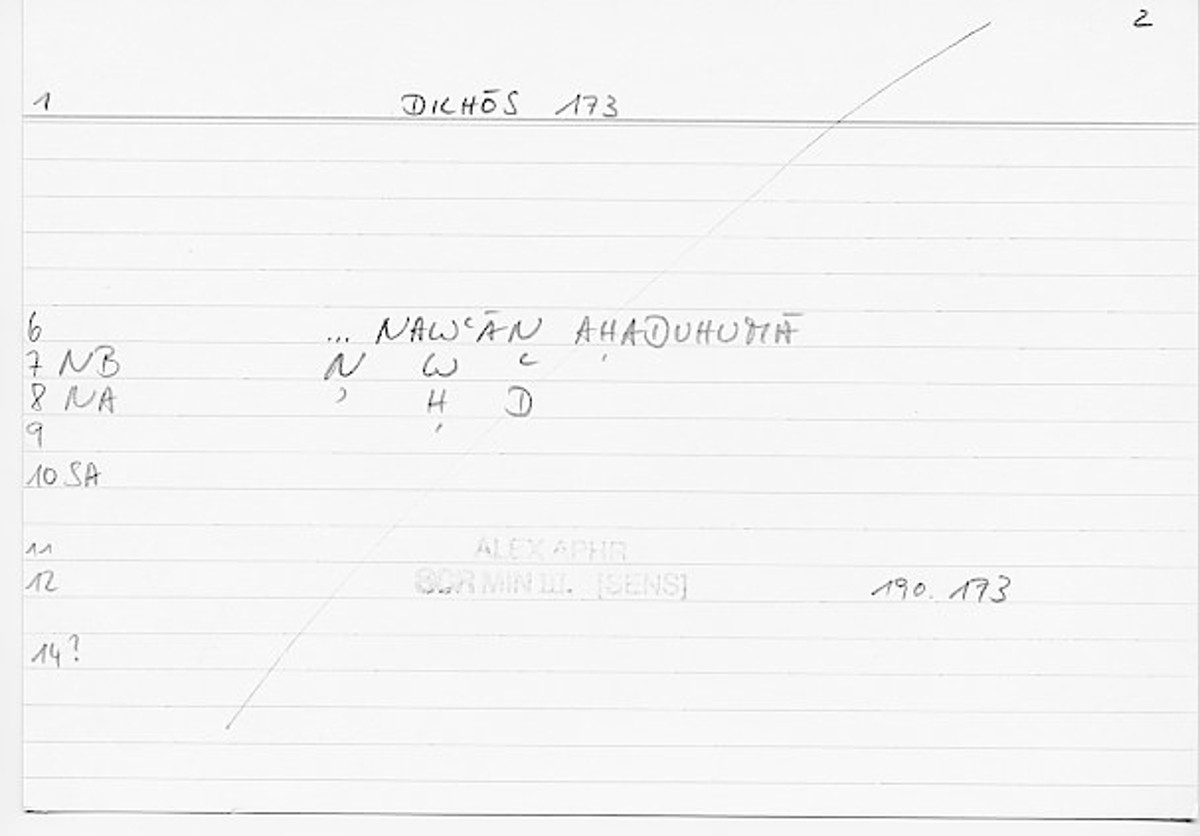 2
1 DICHŌS 173
6 ... NAWʿĀN AḤADUHUMĀ
7 NB N W ʿ
8 NA ʾ Ḥ D
9
10 SA
11 ALEX APHR
12 MIN III. [SENS] 190. 173
14?